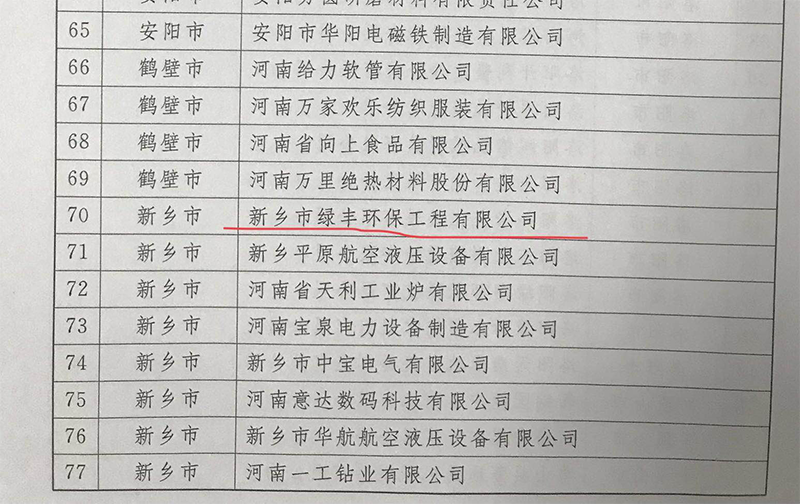 安阳方圆研磨材料有限责任公司
65 安阳市 安阳市华阳电磁铁制造有限公司
66 鹤壁市 河南给力软管有限公司
67 鹤壁市 河南万家欢乐纺织服装有限公司
68 鹤壁市 河南省向上食品有限公司
69 鹤壁市 河南万里绝热材料股份有限公司
70 新乡市 新乡市绿丰环保工程有限公司
71 新乡市 新乡平原航空液压设备有限公司
72 新乡市 河南省天利工业炉有限公司
73 新乡市 河南宝泉电力设备制造有限公司
74 新乡市 新乡市中宝电气有限公司
75 新乡市 河南意达数码科技有限公司
76 新乡市 新乡市华航航空液压设备有限公司
77 新乡市 河南一工钻业有限公司